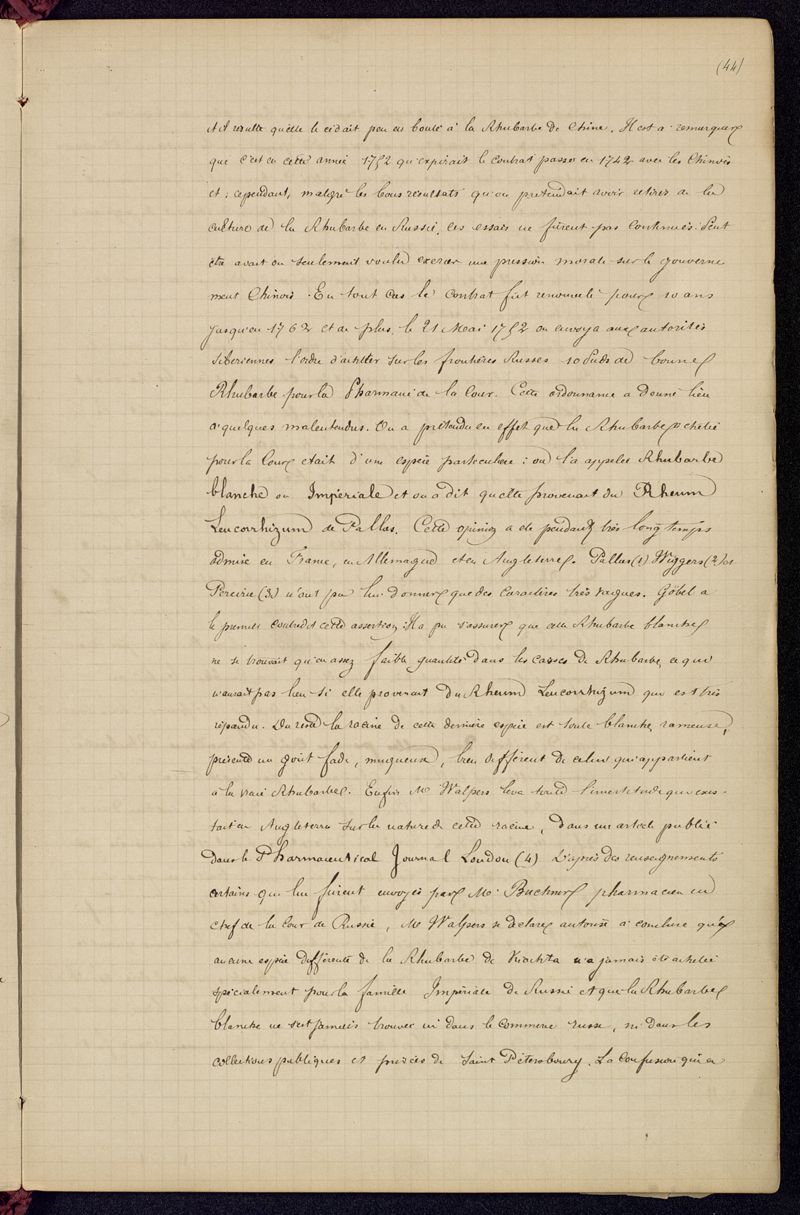 (44)
et il résulte qu'elle le cédait peu en bonté à la Rhubarbe de Chine. Il est à remarquer
que c'est en cette année 1752 qu'expirait le contrat passé en 1742 avec les Chinois
et, cependant, malgré les bons résultats qu'on prétendait avoir retirés de la
culture de la Rhubarbe en Russie, ces essais ne fûrent pas continués. Peut
être avait on seulement voulu exercer une pression morale sur le gouverne
ment Chinois. En tout cas le contrat fût renouvelé pour 10 ans
jusqu'en 1762 et de plus, le 21 Mai 1752 on envoya aux autorités
Sibériennes l'ordre d'acheter sur les frontières Russes 10 Puds de bonne
Rhubarbe pour la Pharmacie de la Cour. Cette ordonnance a donné lieu
à quelques malentendus. On a prétendu en effet que la Rhubarbe achetée
pour la Cour était d'une espèce particulière : on l'a appelée Rhubarbe
blanche ou Impériale et on a dit qu'elle provenait du Rheum
Leucorrhizum de Pallas. Cette opinion a été pendant très long temps
admise en France, en Allemagne et en Angleterre. Pallas (1) Wiggers (2) et
Pereira (3) n'ont pu lui donner que des caractères très vagues. Göbel a
le premier contredit cette assertion. Il a pu s'assurer que cette Rhubarbe blanche
ne se trouvait qu'en assez faible quantité dans les caisses de Rhubarbe, ce qui
n'aurait pas lieu si elle provenait du Rheum Leucorrhizum qui est très
répandu. Du reste la racine de cette dernière espèce est toute blanche, rameuse,
présente un goût fade, muqueux, bien différent de celui qui appartient
à la vraie Rhubarbe. Enfin Mr Walpers leva toute l'incertitude qui exis-
tait en Angleterre sur la nature de cette racine, dans un article publié
dans le Pharmaceutical Journal London (4) D'après des renseignements
certains qui lui fûrent envoyés par Mr Buchner pharmacien en
chef de la Cour de Russie, Mr Walpers se déclare autorisé à conclure qu'
aucune espèce différente de la Rhubarbe de Kiachta n'a jamais été achetée
spécialement pour la famille Impériale de Russie et que la Rhubarbe
blanche ne s'est jamais trouvée ni dans le commerce russe, ni dans les
collections publiques et privées de Saint Pétersbourg. La confusion qui a